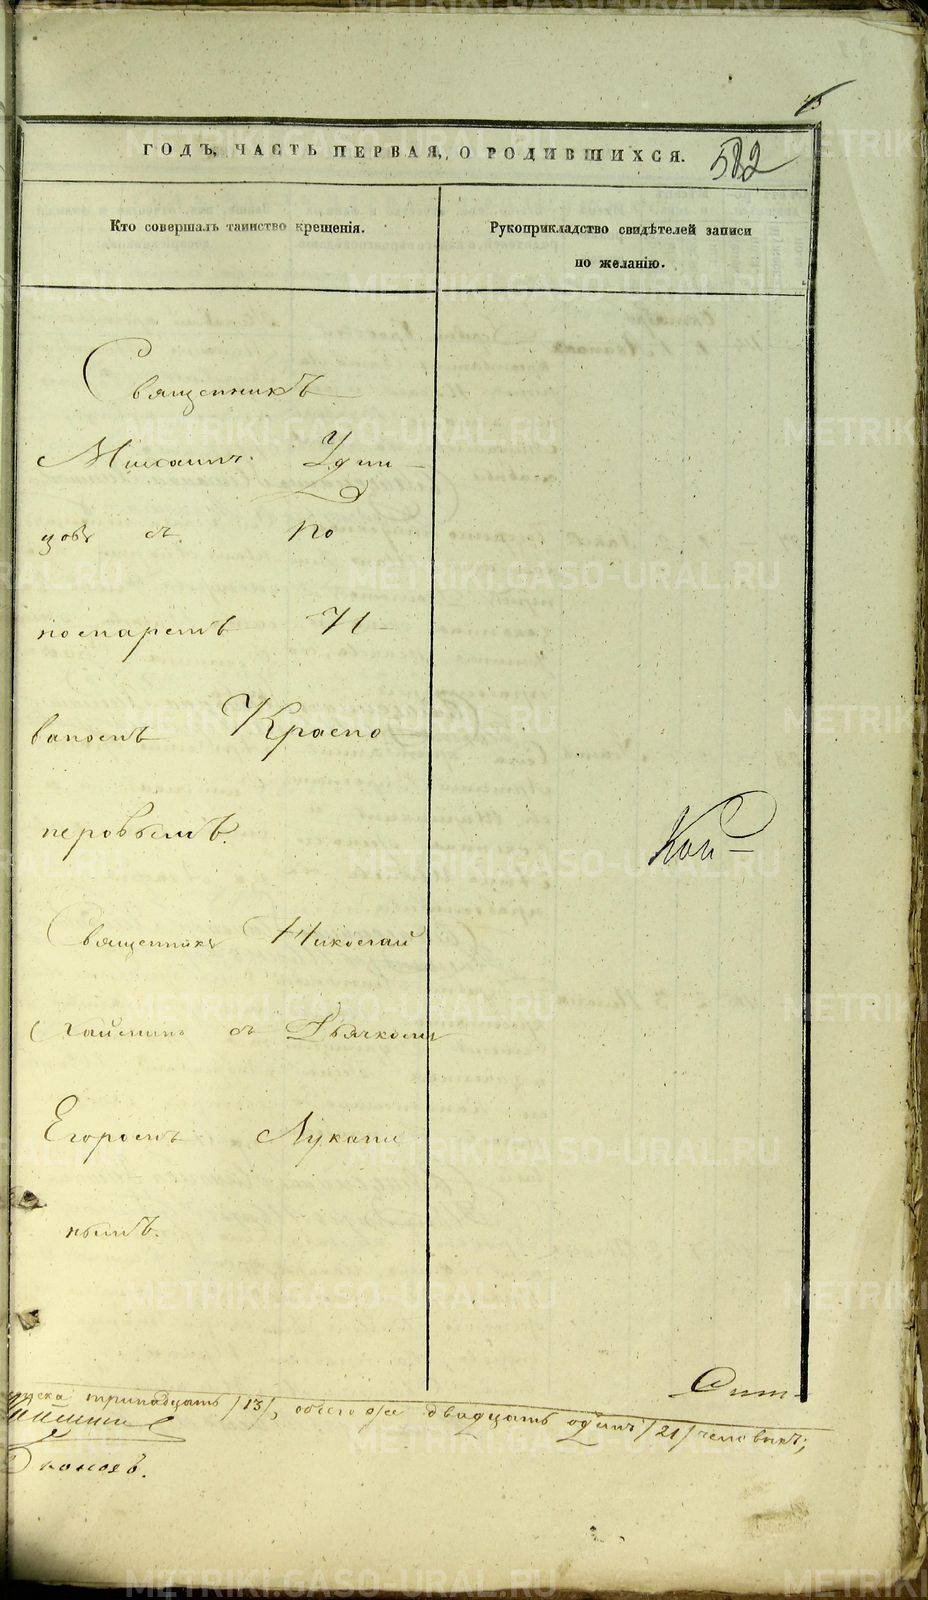 ГОДЪ, ЧАСТЬ ПЕРВАЯ, О РОДИВШИХСЯ.
582
Кто совершалъ таинство крещенія.
Рукоприкладство свидѣтелей записи
по желанію.
Священникъ
Михаилъ Удин-
цовъ съ По
номаремъ И-
ваномъ Красно
перовымъ.
Священникъ Николай
съ Дьячкомъ
Егоромъ Лукани
нымъ.
тринадцать /13/, обоего же двадцать одинъ /21/ человѣкъ;
METRIKI.GASO-URAL.RU